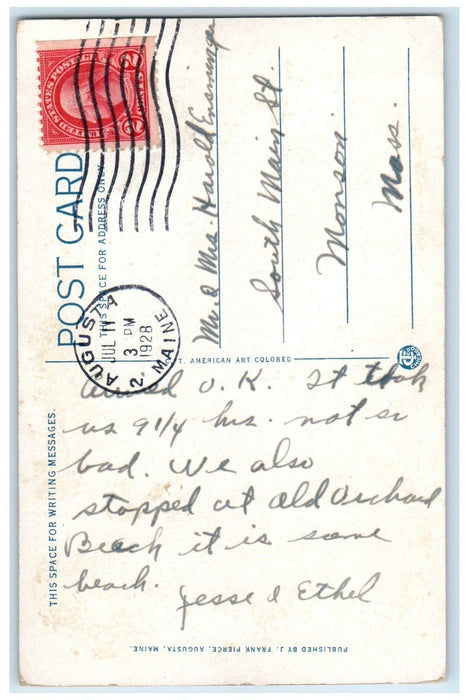 UNITED STATES POSTAGE
2 2
POST CARD
THIS SPACE FOR ADDRESS ONLY
AUGUSTA
JUL 11
3 PM
1928
2
MAINE
Mr. & Mrs. Harold Ensminger
South Main St.
Monson
Mass.
T. AMERICAN ART COLORED
THIS SPACE FOR WRITING MESSAGES.
Arrived O.K. It took
us 9 1/4 hrs. not so
bad. We also
stopped at Old Orchard
Beach it is some
beach.
Jesse & Ethel
PUBLISHED BY J. FRANK PIERCE, AUGUSTA, MAINE.